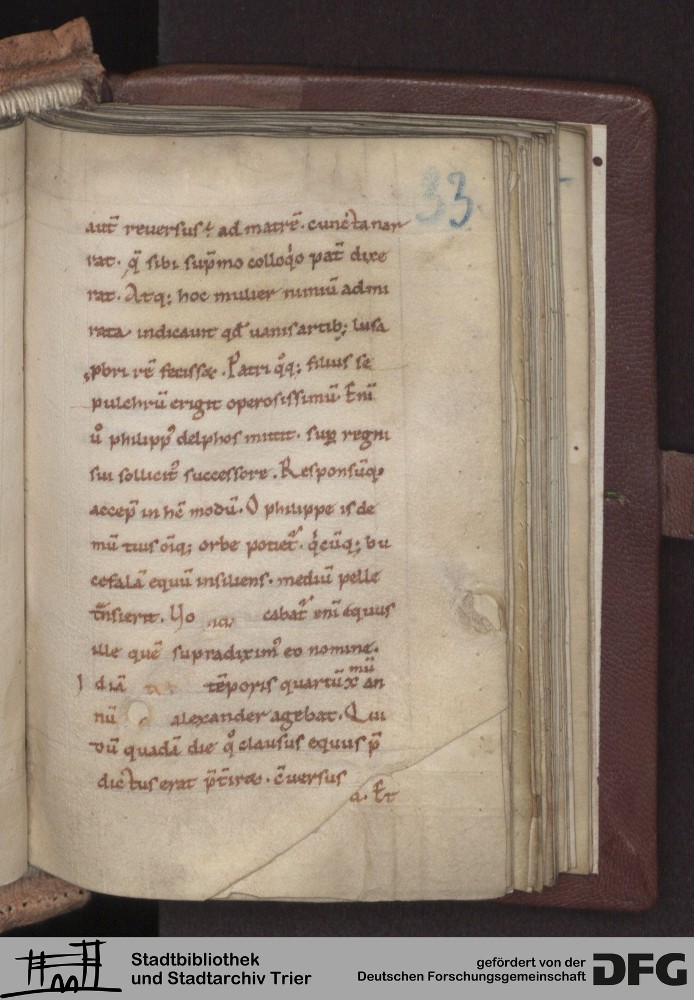 33
aut̄ reuersus ad matrē. cuncta nar
rat. q̄ sibi sup̄mo colloq̇o pat̄ dixe
rat. Atq; hoc mulier nimiū admi
rata indicauit qđ uanis artib; lusa
p̄bri rē fecisset. Patri q̊q; filius se
pulchrū erigit operosissimū. Enī
ů philipp᾽ delphos mittit. sup regni
sui sollicit᾽ successore. Responsūq;
accep̄ in hc̄ modū. O philippe is de
mū tuis oīq; orbe potiet᷑. q̇cūq; bu
cefalā equū insiliens. mediū pelle
t̄nsierit. Uo cabat᷑ enī equus
ille quē supradixim᾽ eo nomine.
I diā tēporis quartū x mū an
nū alexander agebat. Qui
dū quadā die q̊ clausus equus p̄
dictus erat p̄t̄iret. c̄uersus
a. Et
Stadtbibliothek
und Stadtarchiv Trier
gefördert von der
Deutschen Forschungsgemeinschaft
DFG